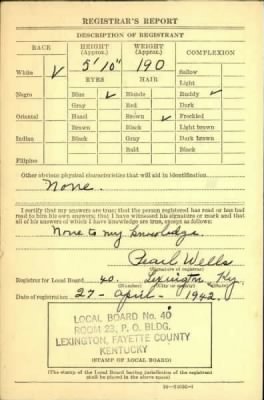 REGISTRAR'S REPORT
DESCRIPTION OF REGISTRANT
RACE HEIGHT (Approx.) WEIGHT (Approx.) COMPLEXION
5' 10" 190
White ✓ Sallow
EYES HAIR Light
Negro Blue ✓ Blonde Ruddy ✓
Gray Red Dark
Oriental Hazel Brown ✓ Freckled
Brown Black Light brown
Indian Black Gray Dark brown
Bald Black
Filipino
Other obvious physical characteristics that will aid in identification
None.
I certify that my answers are true; that the person registered has read or has had
read to him his own answers; that I have witnessed his signature or mark and that
all of his answers of which I have knowledge are true, except as follows:
None to my knowledge.
Pearl Wells
(Signature of registrar)
Registrar for Local Board 40. Lexington, Ky.
(Number) (City or county) (State)
Date of registration 27 - April - 1942.
LOCAL BOARD No. 40
ROOM 23, P. O. BLDG.
LEXINGTON, FAYETTE COUNTY
KENTUCKY
(STAMP OF LOCAL BOARD)
(The stamp of the Local Board having jurisdiction of the registrant
shall be placed in the above space)